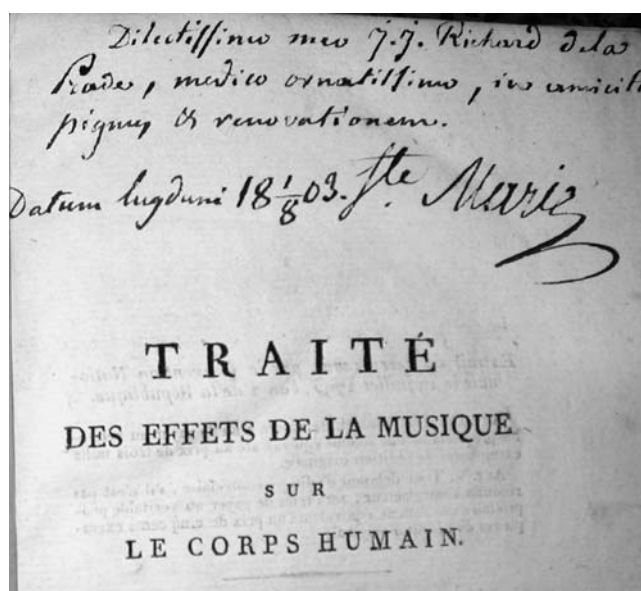 Dilectissimo meo J.J. Richard dela
Prade, medico ornatissimo, in amicit
pignus & renovationem.
Datum lugduni 18 1/8 03. Ste. Marie
TRAITÉ
DES EFFETS DE LA MUSIQUE
SUR
LE CORPS HUMAIN.